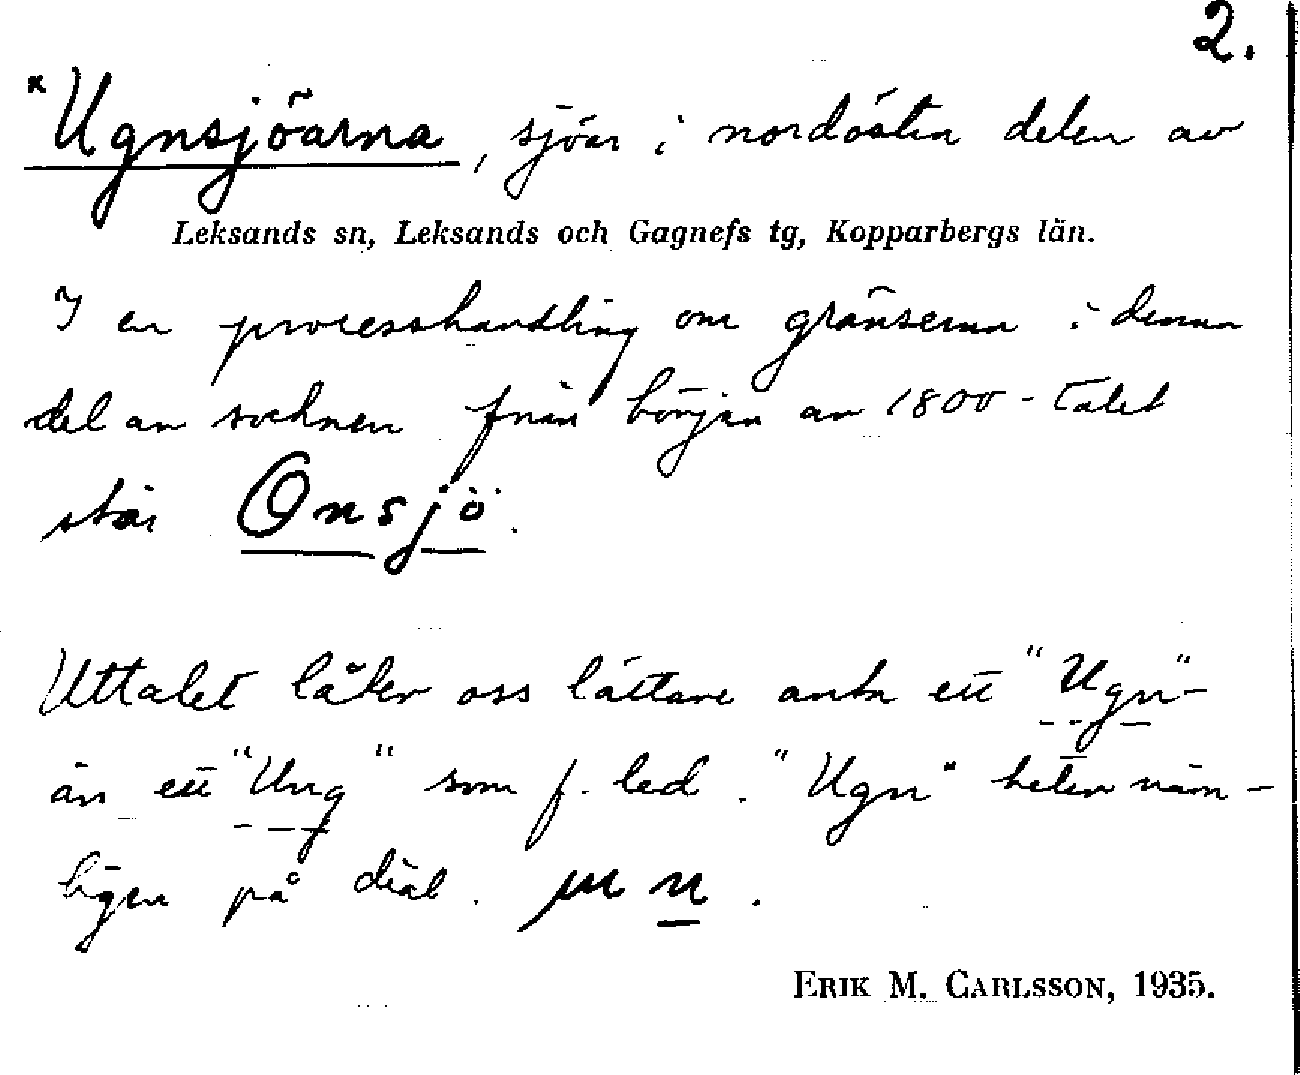 2.
*Ugnsjöarna, sjöar i nordöstra delen av
Leksands sn, Leksands och Gagnefs tg, Kopparbergs län.
I en processhandling om gränserna i denna
del av socknen från början av 1800-talet
står Onsjö.
Uttalet låter oss lättare anta ett "Ugn"-
än ett "Ung" som f. led. "Ugn" heter näm-
ligen på dial.
ERIK M. CARLSSON, 1935.